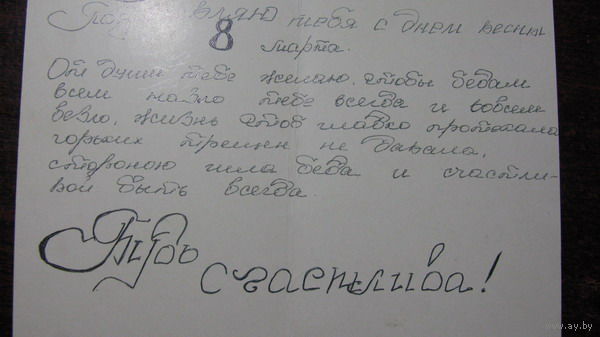 Поздравляю тебя с днем весны
8 марта.
От души тебе желаю, чтобы бедам
всем назло тебе всегда и во всем
везло, жизнь чтоб гладко протекала
горьких трещин не давала,
стороною шла беда и счастли-
вой быть всегда.
Будь
счастлива!
www.ay.by